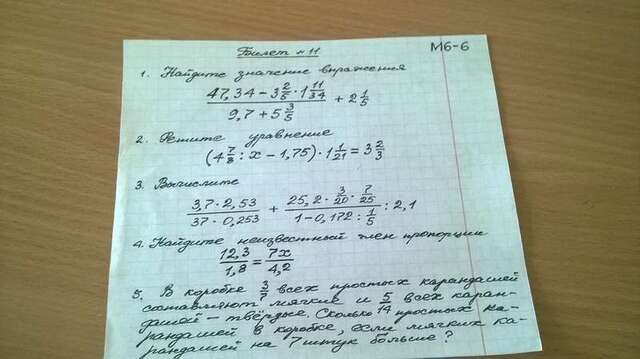 Билет № 11
М6-6
1. Найдите значение выражения
(47,34 − 3 2/5 · 1 11/34) / (9,7 + 5 3/5) + 2 1/5
2. Решите уравнение
(4 7/8 : x − 1,75) · 1 1/21 = 3 2/3
3. Вычислите
(3,7 · 2,53) / (37 · 0,253) + (25,2 · 3/20 · 7/25) / (1 − 0,172 : 1/5) : 2,1
4. Найдите неизвестный член пропорции
12,3/1,8 = 7x/4,2
5. В коробке 3/7 всех простых карандашей
составляют мягкие и 5/14 всех каран-
дашей — твёрдые. Сколько простых ка-
рандашей в коробке, если мягких ка-
рандашей на 7 штук больше?